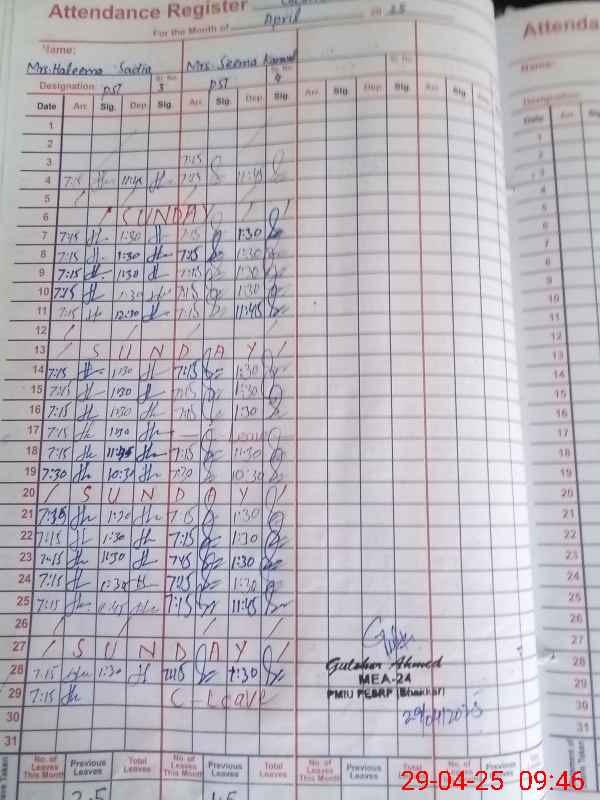 Attendance Register
For the Month of April 20 25
Attenda
Name:
Name:
Mrs. Haleema Sadia Mrs. Seema
Sr. No. 3 Sr. No. 9
Designation PST PST
Designation
Date Arr. Sig. Dep. Sig. Arr. Sig. Dep. Sig. Arr. Sig. Dep. Sig. Arr. Sig. Dep. Sig.
Date Arr. Sig
1
2
3 7:15
4 7:15 11:45 7:15 11:45
5
6 SUNDAY
7 7:15 1:30 7:15 1:30
8 7:15 1:30 7:15 1:30
9 7:15 1:30 7:15 1:30
10 7:15 1:30 7:15 1:30
11 7:15 12:30 7:15 11:45
12
13 SUNDAY
14 7:15 1:30 7:15 1:30
15 7:15 1:30 7:15 1:30
16 7:15 1:30 7:15 1:30
17 7:15 1:30 Leave
18 7:15 11:45 7:15 11:30
19 7:30 10:30 7:30 10:30
20 SUNDAY
21 7:15 1:30 7:15 1:30
22 7:15 1:30 7:15 1:30
23 7:15 1:30 7:15 1:30
24 7:15 1:30 7:15 1:30
25 7:15 11:45 7:15 11:45
26
27 SUNDAY
28 7:15 1:30 7:15 1:30
29 7:15 C-Leave
30
31
Gulshan Ahmed
MEA-24
PMIU PESRP (Bhakkar)
29/04/2025
No. of Leaves This Month Previous Leaves Total Leaves No. of Leaves This Month Previous Leaves Total Leaves No. of Leaves This Month Previous Leaves Total Leaves No. of Leaves This Month Previous Leaves
29-04-25 09:46